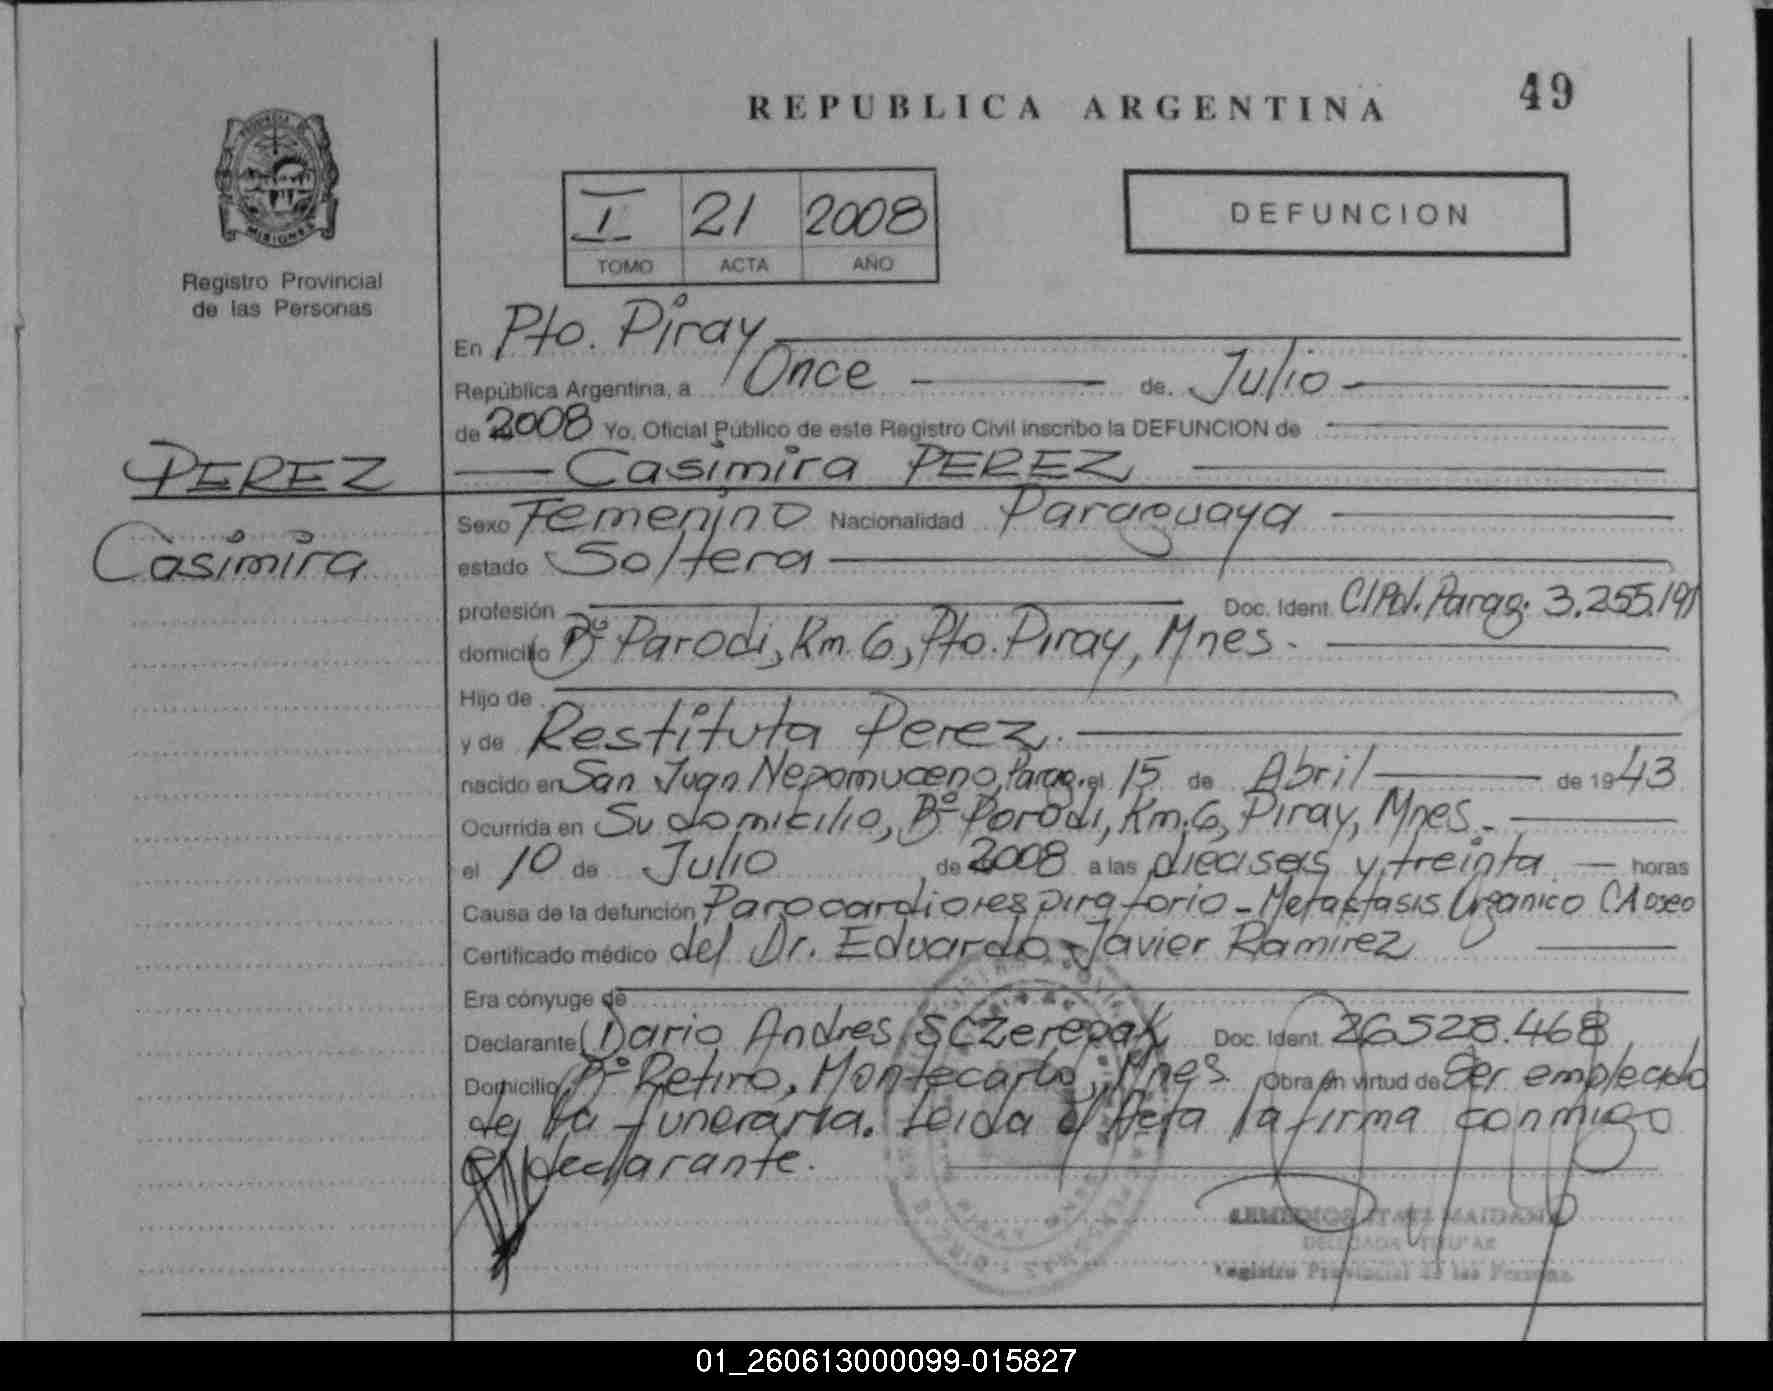 REPUBLICA ARGENTINA
49
PROVINCIA DE
MISIONES
Registro Provincial
de las Personas
I 21 2008
TOMO ACTA AÑO
DEFUNCION
En Pto. Piray
República Argentina, a Once de Julio
de 2008 Yo, Oficial Público de este Registro Civil inscribo la DEFUNCION de
PEREZ
Casimira
Casimira PEREZ
Sexo Femenino Nacionalidad Paraguaya
estado Soltera
profesión Doc. Ident. CI Pol. Parag. 3.255.191
domicilio Bº Parodi, Km. 6, Pto. Piray, Mnes.
Hijo de
y de Restituta Perez.
nacido en San Juan Nepomuceno, Parag. el 15 de Abril de 1943
Ocurrida en Su domicilio, Bº Parodi, Km. 6, Piray, Mnes.
el 10 de Julio de 2008 a las dieciseis y treinta horas
Causa de la defunción Parocardiorespiratorio - Metastasis Organico CA oseo
Certificado médico del Dr. Eduardo Javier Ramirez
Era cónyuge de
Declarante Dario Andres SCZerepak Doc. Ident. 26528.468
Domicilio Bº Retiro, Montecarlo, Mnes. Obra en virtud de Ser empleado
de la funeraria. Leida el Acta la firma conmigo
el declarante.
DELEGADA TITULAR
Registro Provincial de las Personas
01_260613000099-015827